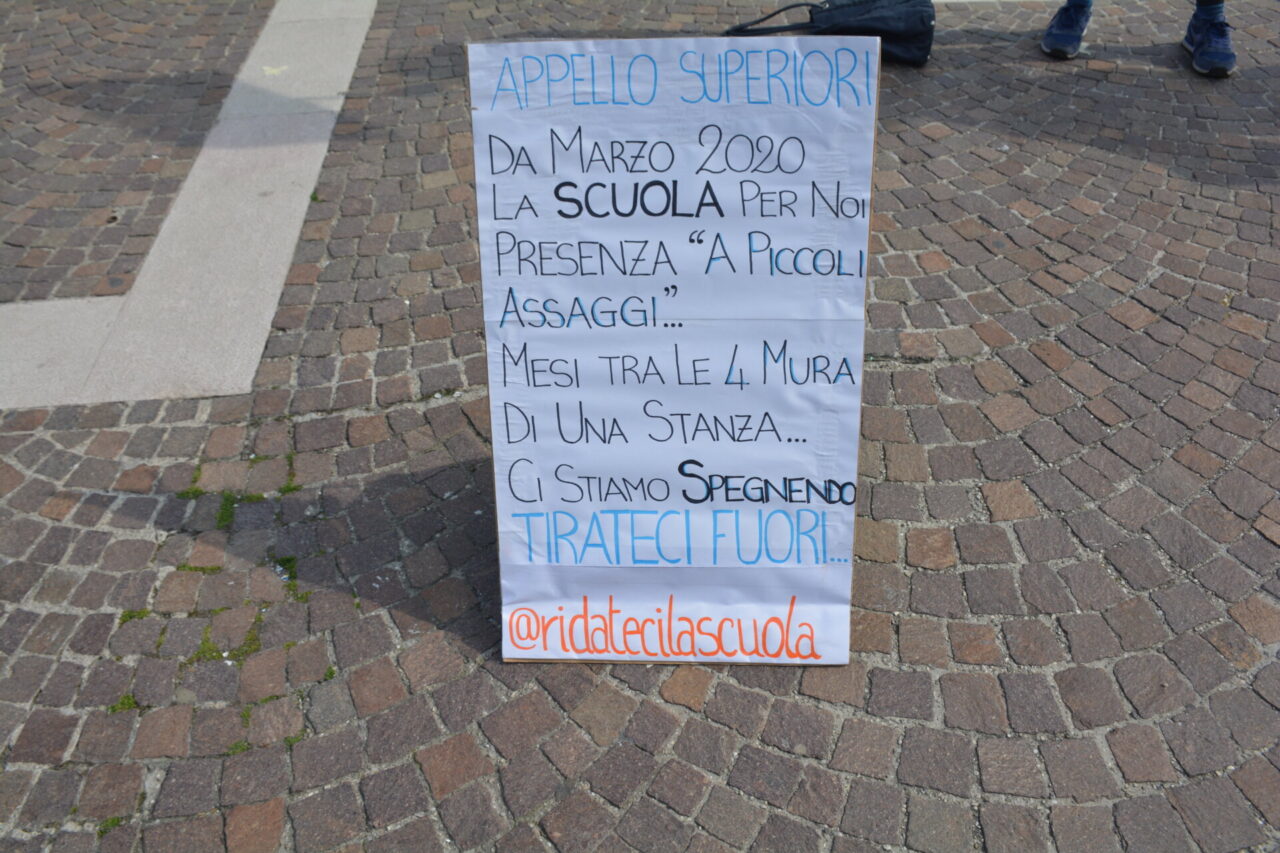 APPELLO SUPERIORI
DA MARZO 2020
LA SCUOLA PER NOI
PRESENZA “A PICCOLI
ASSAGGI”...
MESI TRA LE 4 MURA
DI UNA STANZA...
CI STIAMO SPEGNENDO
TIRATECI FUORI...
@ridatecilascuola